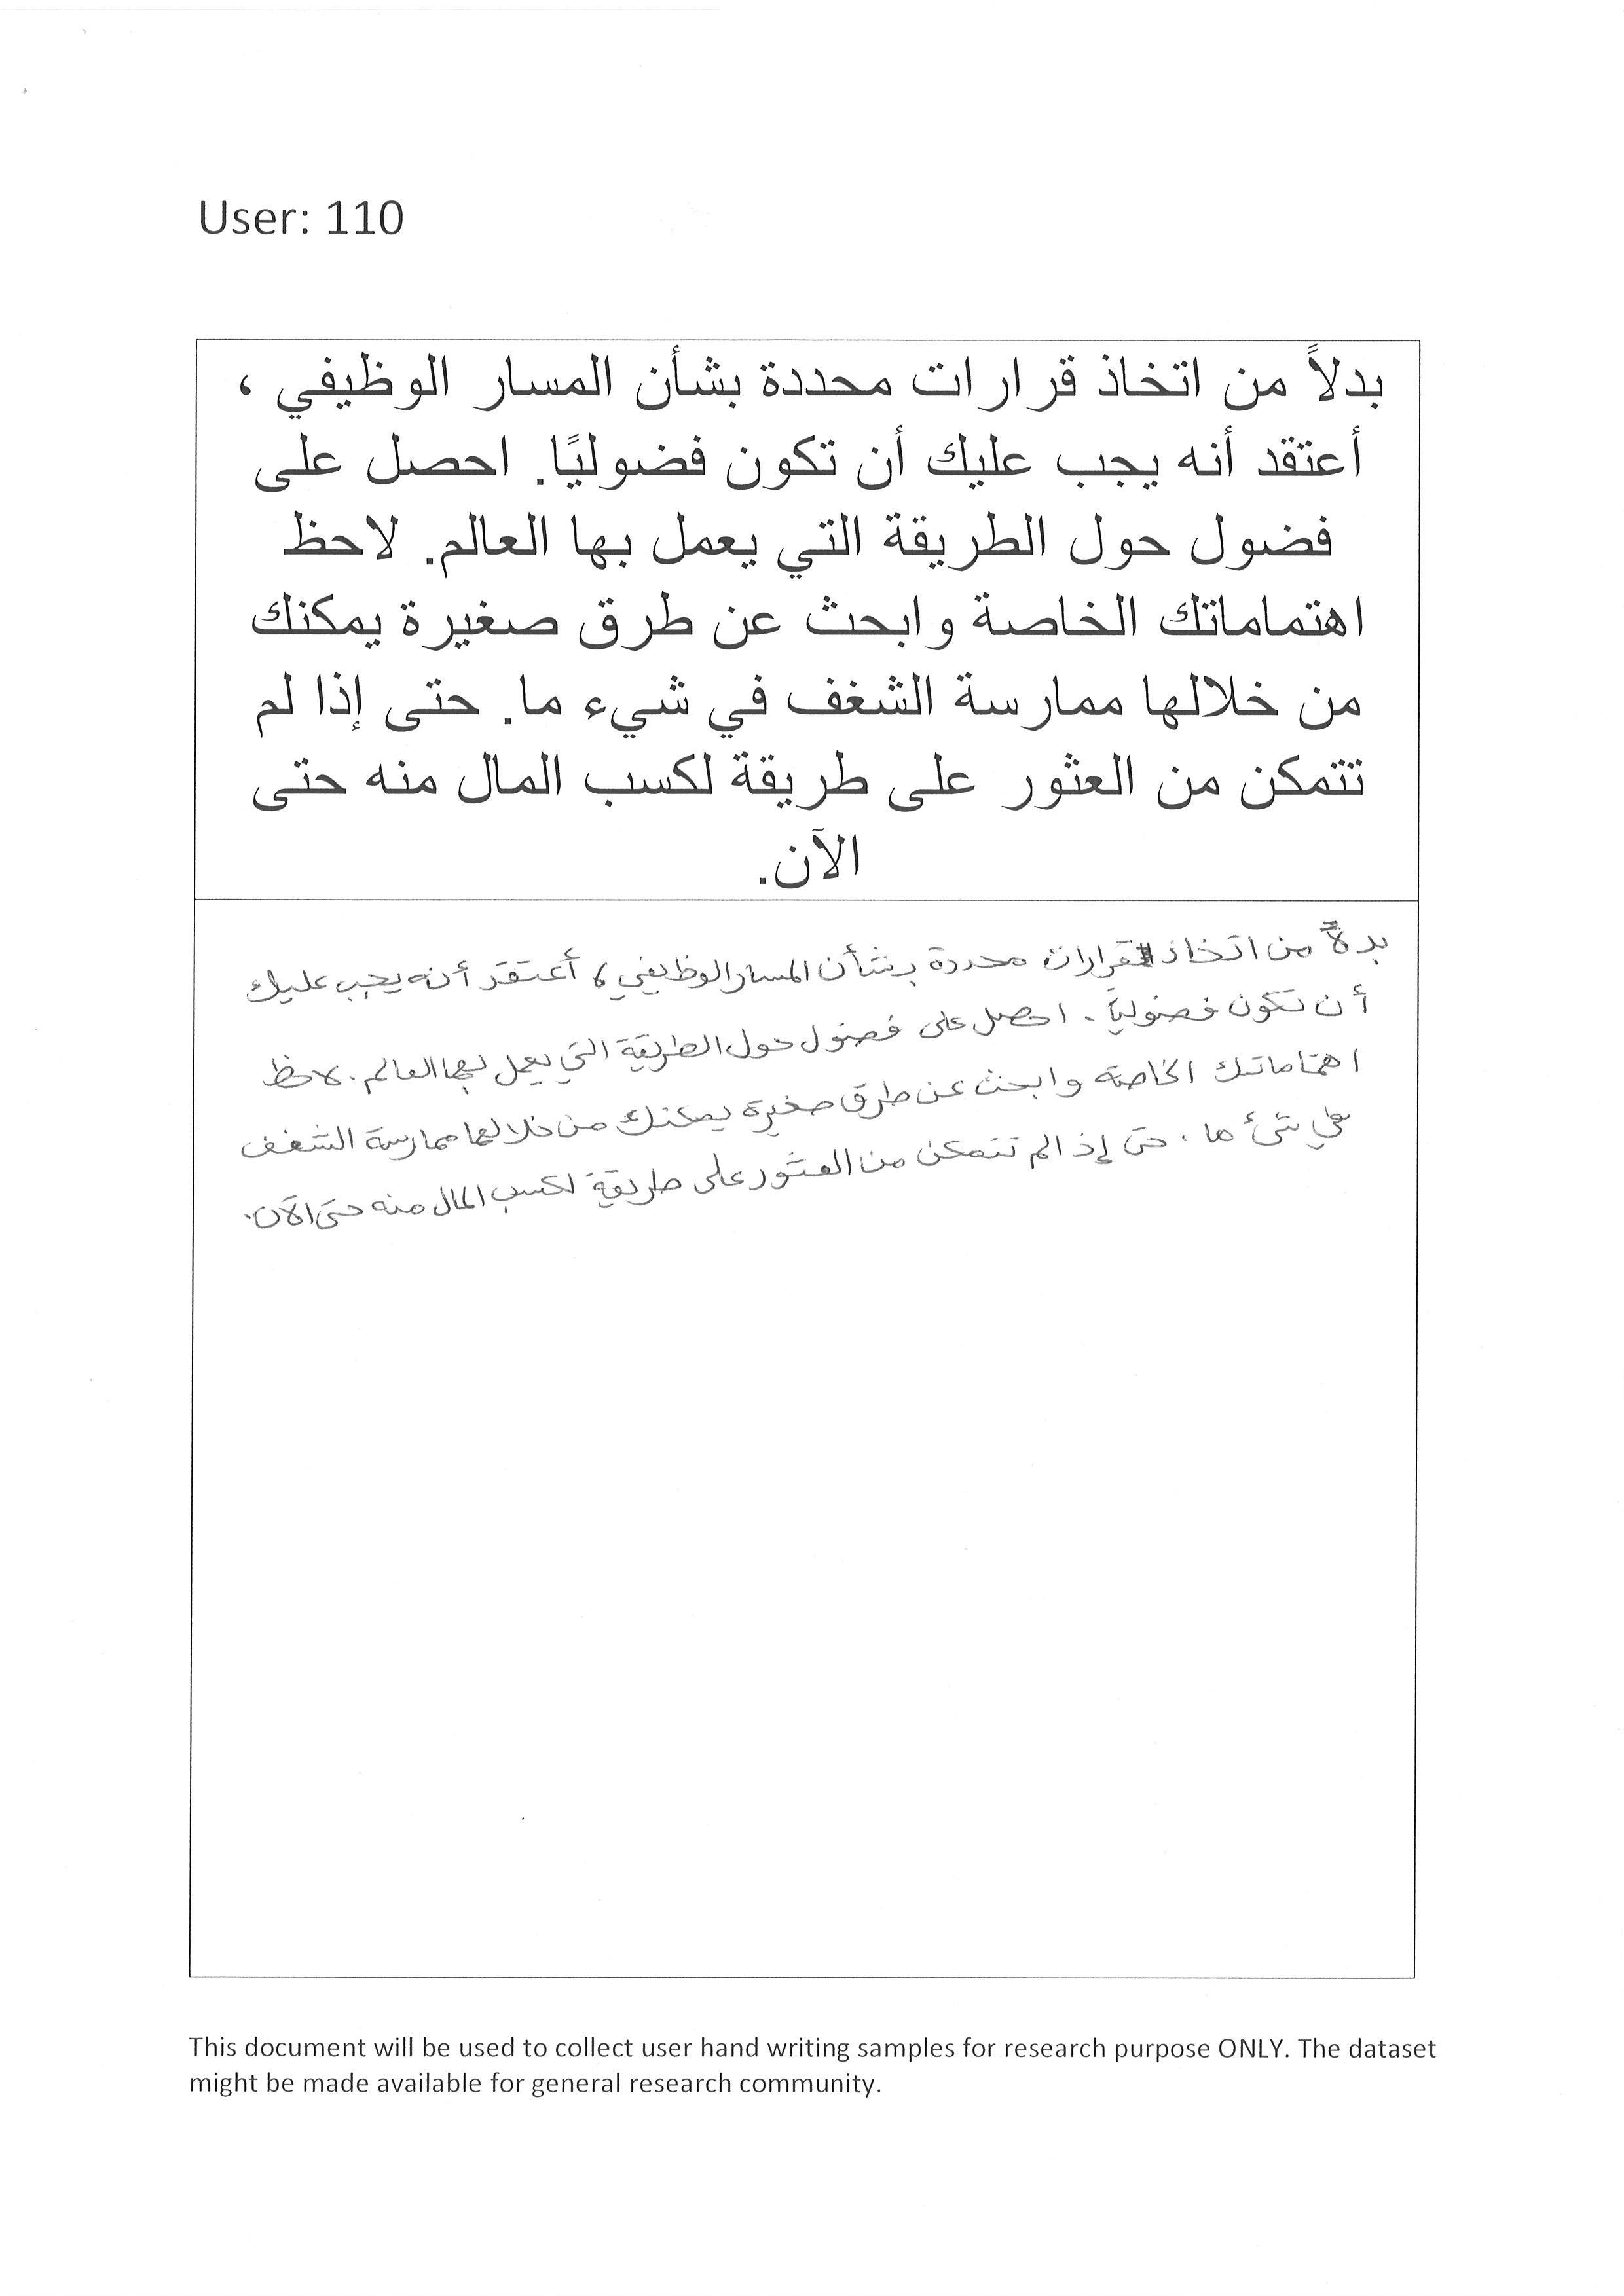 User: 110
بدلاً من اتخاذ قرارات محددة بشأن المسار الوظيفي ،
أعتقد أنه يجب عليك أن تكون فضوليًا. احصل على
فضول حول الطريقة التي يعمل بها العالم. لاحظ
اهتماماتك الخاصة وابحث عن طرق صغيرة يمكنك
من خلالها ممارسة الشغف في شيء ما. حتى إذا لم
تتمكن من العثور على طريقة لكسب المال منه حتى
الآن.
بدلاً من اتخاذ قرارات محددة بشأن المسار الوظيفي ، أعتقد أنه يجب عليك
أن تكون فضولياً . احصل على فضول حول الطريقة التي يعمل بها العالم . لاحظ
اهتماماتك الخاصة وابحث عن طرق صغيرة يمكنك من خلالها ممارسة الشغف
في شيء ما . حتى إذا لم تتمكن من العثور على طريقة لكسب المال منه حتى الآن.
This document will be used to collect user hand writing samples for research purpose ONLY. The dataset
might be made available for general research community.